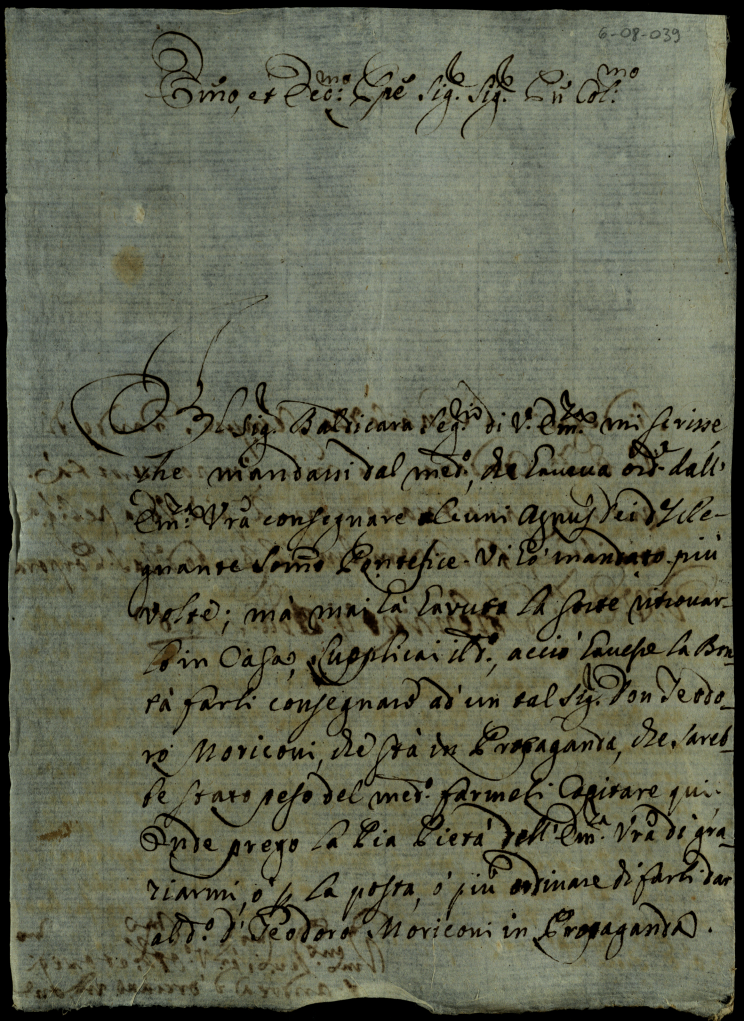 6-08-039
Emo, et Rec.mo Spe Sig.e Sig.e Pn Col.mo
Il Sig.e Baldicara Seg.rio di V.a Em.za mi scrisse
che mandassi dal med.o, che haueua ord.e dall'
Em.za Vra consegnare alcuni Agnus Dei d'
gnante Somo Pontefice. Vi hò mandato più
volte; mà mai hà havuta la sorte ritrouar-
lo in Casa, Supplicai il d.o, acciò hauesse la Bon-
tà farli consegnare ad' un tal Sig.e Don Teodo-
ro Moriconi, che stà in Propaganda, che sareb-
be stato peso del med.o farmeli Capitare qui.
Onde prego la Pia Pietà dell'Em.a Vra di gra-
ziarmi, ò p la posta, ò più ordinare di farli dar
al d.o D. Teodoro Moriconi in Propaganda.